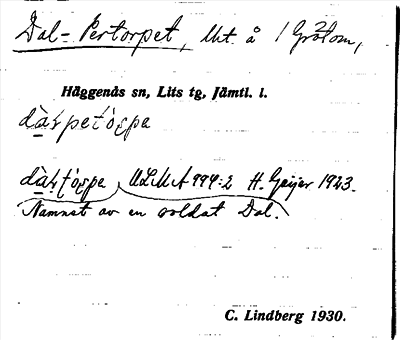 Dal-Pertorpet, lht å 1 Grötom,
Häggenås sn, Lits tg, Jämtl. l.
ULMA 994:2 H. Geijer 1923.
Namnet av en soldat Dal.
C. Lindberg 1930.